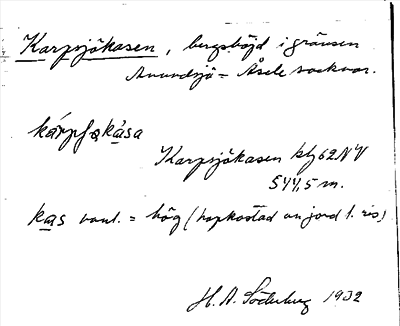 Karpsjökasen, bergshöjd i gränsen
Anundsjö - Åsele socknar.
kárpʃøkàsa
Karpsjökasen kbl 62 NV
544,5 m.
kas vanl. = hög (hopkastad av jord l. ris)
H. A. Söderberg 1932